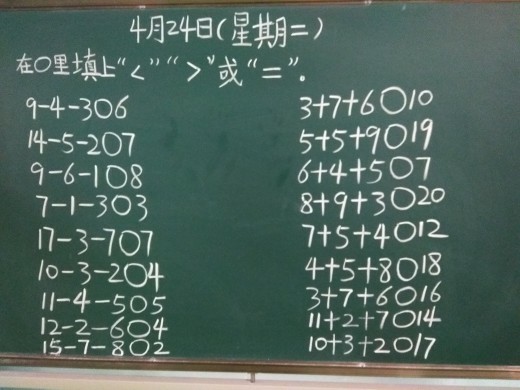 4月24日(星期二)
在○里填上“<”“>”或“=”.
9-4-3○6
14-5-2○7
9-6-1○8
7-1-3○3
17-3-7○7
10-3-2○4
11-4-5○5
12-2-6○4
15-7-8○2
3+7+6○10
5+5+9○19
6+4+5○7
8+9+3○20
7+5+4○12
4+5+8○18
3+7+6○16
11+2+7○14
10+3+2○17